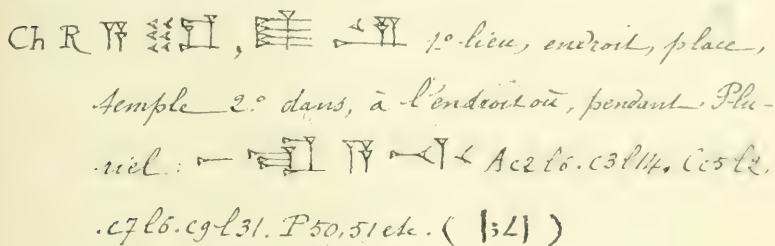 Ch R 𒀀 𒊬, 𒀾 𒊒 1º lieu, endroit, place,
temple 2º dans, à l'endroit où, pendant. Plu-
riel: 𒀸 𒊏 𒀀 𒋾 Ac2l6. c3l14. Cc5l2.
.c7l6. c9l31. P50,51 etc. (ܐܬܪܐ)